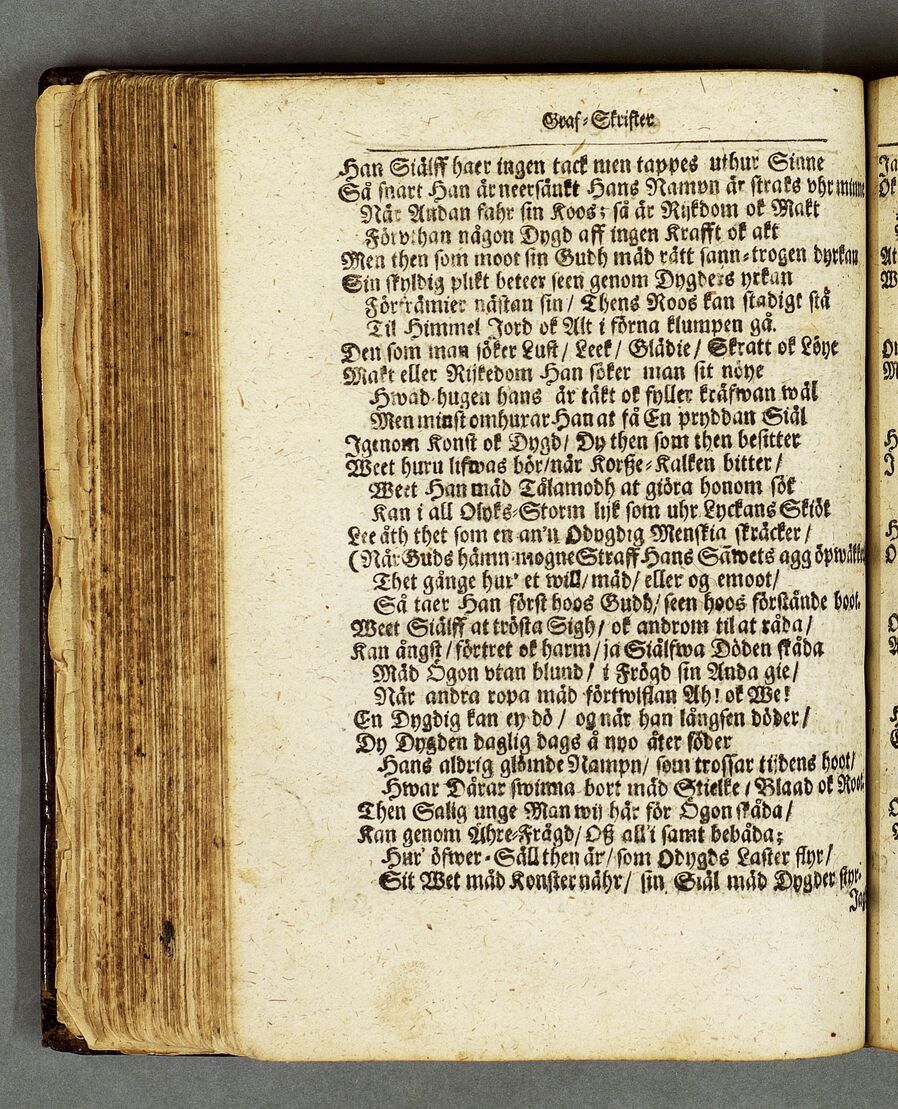 Graf-Skrifter
Han Siälff haer ingen tack men tappes uthur Sinne
Så snart Han är neersänkt Hans Nampn är straks vhr minne
När Andan fahr sin Koos; så är Rijkdom ok Makt
Förvthan någon Dygd aff ingen Krafft ok akt
Men then som moot sin Gudh mäd rätt sann-trogen dyrkan
Sin skyldig plikt beteer seen genom Dygders yrkan
Förfrämier nästan sin/ Thens Roos kan stadigt stå
Til Himmel Jord ok Alt i förna klumpen gå.
Den som man söker Lust/ Leek/ Glädie/ Skratt ok Löye
Makt eller Rijkedom Han söker man sit nöye
Hwad hugen hans är täkt ok fyller kräfwan wäl
Men minst omhurar Han at få En pryddan Siäl
Igenom Konst ok Dygd/ Dy then som then besitter
Weet huru lifwas bör/när Korße-Kalken bitter/
Weet Han mäd Tålamodh at giöra honom sök
Kan i all Olyks-Storm lijk som uhr Lyckans Skiök
Lee åth thet som en an'n Odygdig Menskia skräcker/
(När Guds hämn mogne Straff Hans Säwets agg öpwäkke
Thet gånge hur' et will/ mäd/ eller og emoot/
Så taer Han först hoos Gudh/ seen hoos förstånde boot.
Weet Siälff at trösta Sigh/ ok androm til at råda/
Kan ångst/ förtret ok harm/ ja Siälfwa Döden skåda
Mäd Ögon vtan blund/ i Frögd sin Anda gie/
När andra ropa mäd förtwiflan Ah! ok We!
En Dygdig kan ey dö/ og när han långsen döder/
Dy Dygden daglig dags å nyo åter föder
Hans aldrig glömde Nampn/ som trossar tijdens hoot/
Hwar Dårar swinna bort mäd Stielke/ Blaad ok Root.
Then Salig unge Man wij här för Ögon skåda/
Kan genom Ähre-Frägd/ Oß all'i samt bebåda;
Hur' öfwer-Säll then är/ som Odygds Laster flyr/
Sit Wet mäd Konster nähr/ sin Siäl mäd Dygder styr.